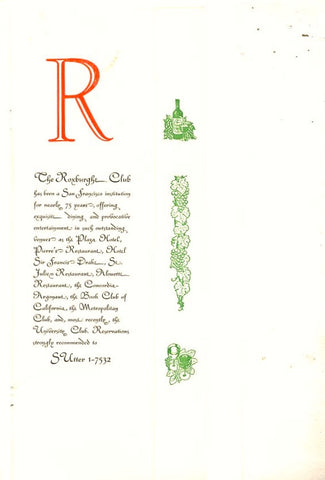 R
The Roxburghe Club
has been a San Francisco institution
for nearly 75 years, offering
exquisite dining and provocative
entertainment in such outstanding
venues as the Plaza Hotel,
Pierre's Restaurant, Hotel
Sir Francis Drake, St.
Julien Restaurant, Alouette
Restaurant, the Concordia-
Argonaut, the Book Club of
California, the Metropolitan
Club, and, most recently, the
University Club. Reservations
strongly recommended to
SUtter 1-7532